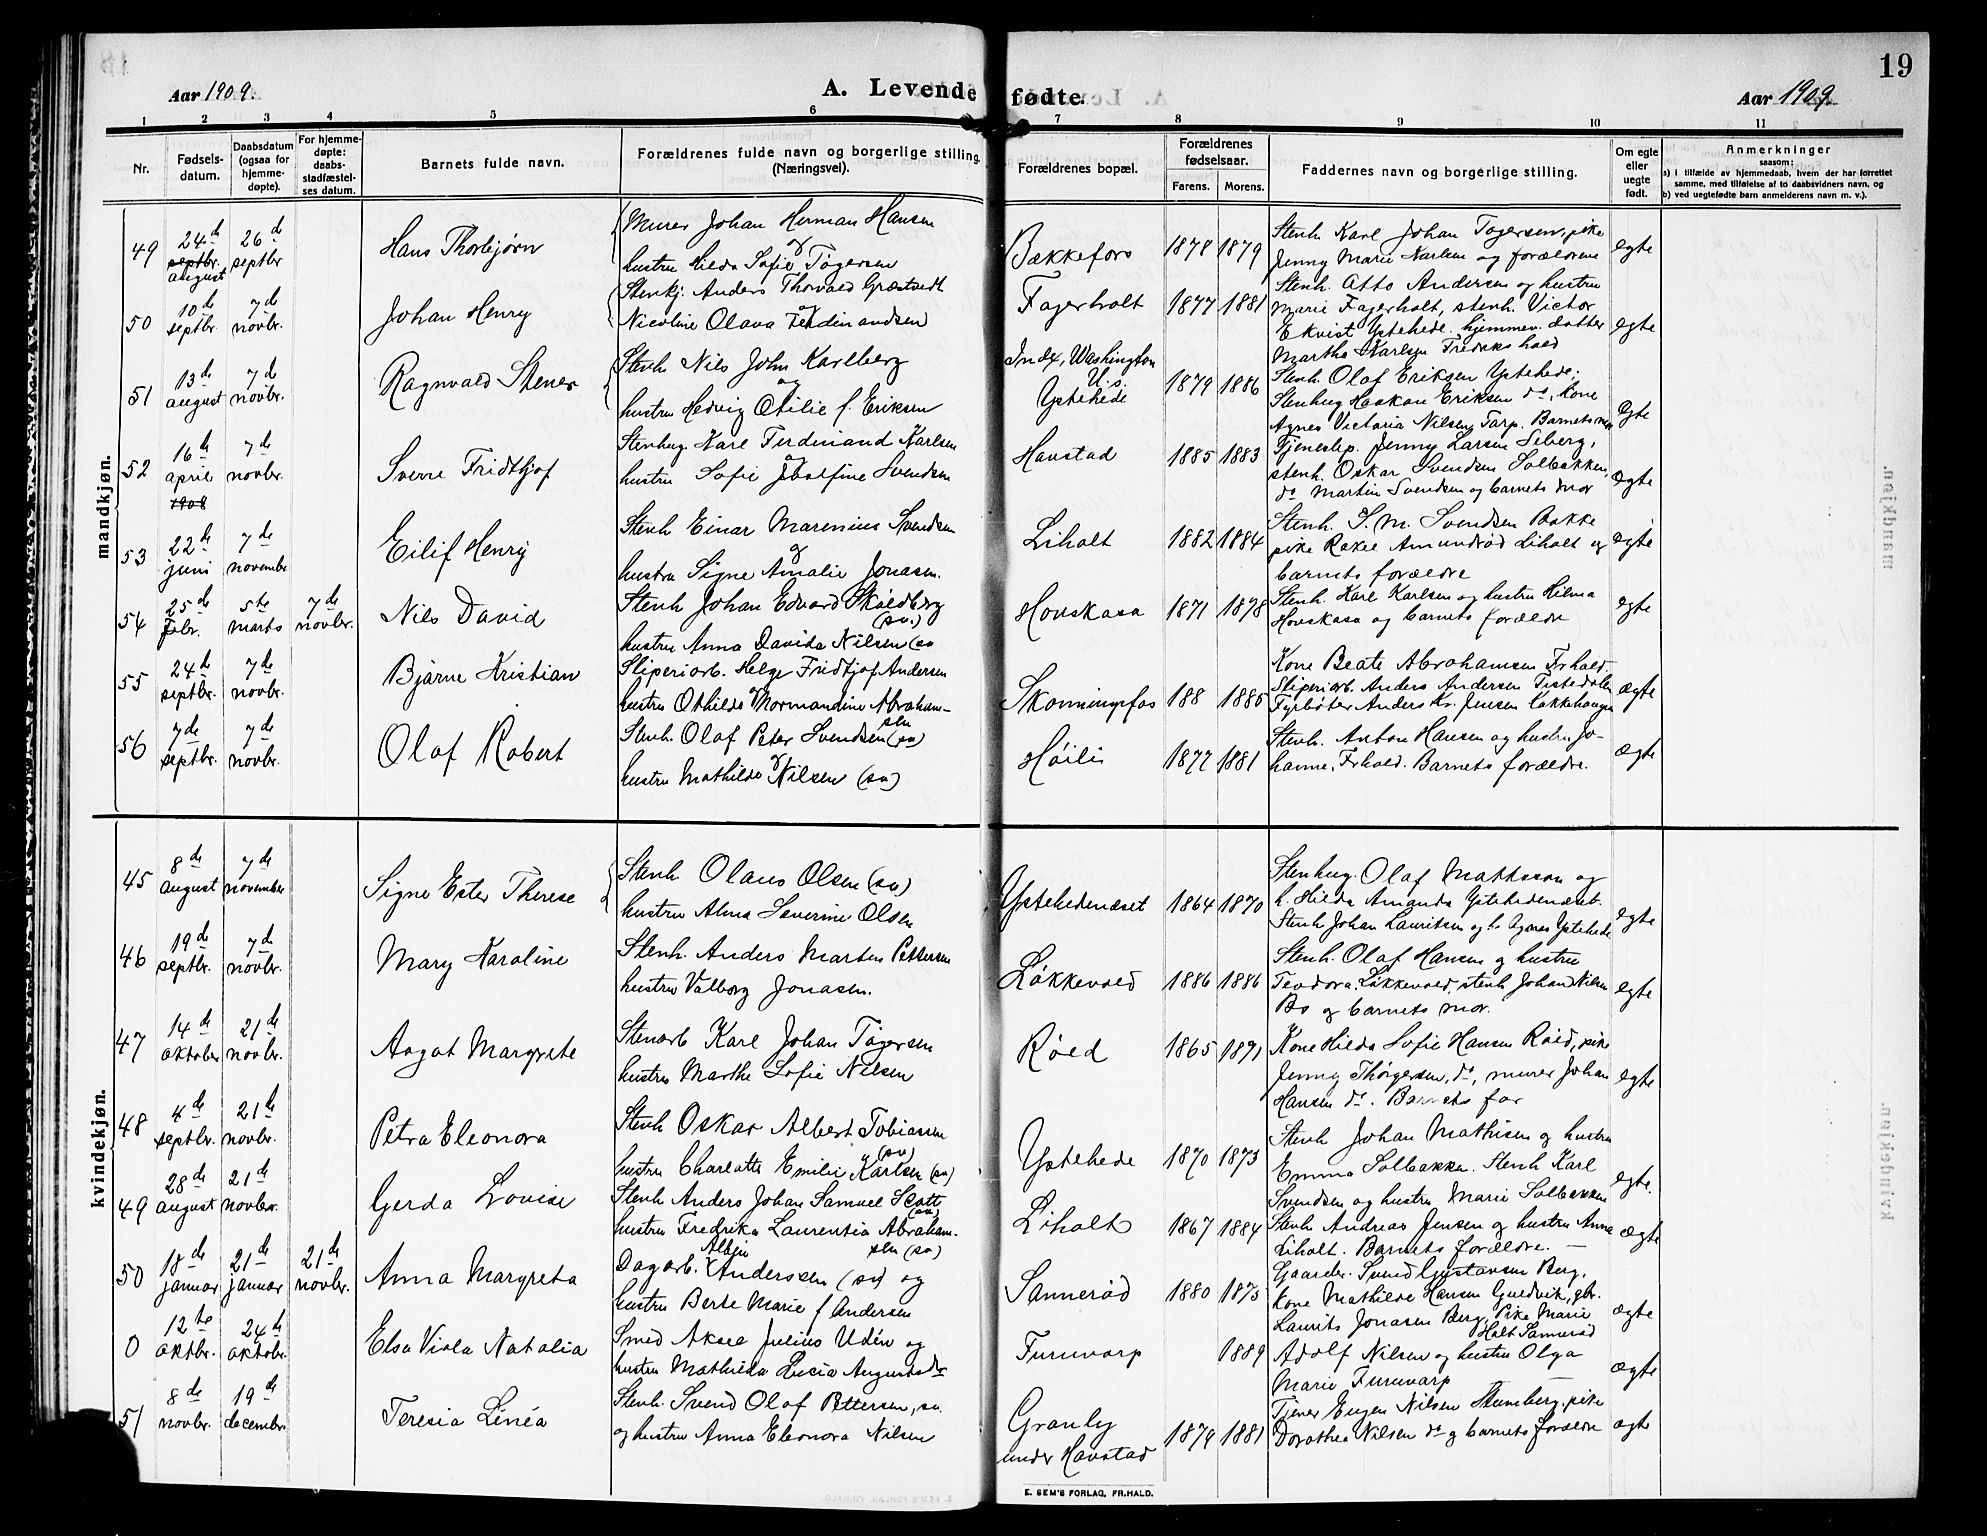 19
Aar 1909.
A. Levende fødte.
Aar 1909
1 2 3 4 5 6 7 8 9 10 11
Nr.
Fødsels-datum.
Daabsdatum (ogsaa for hjemme-døpte).
For hjemme-døpte: daabs-stadfæstel-ses datum.
Barnets fulde navn.
Forældrenes fulde navn og borgerlige stilling. (Næringsvei).
Forældrenes bopæl.
Forældrenes fødselsaar.
Farens. Morens.
Faddernes navn og borgerlige stilling.
Om egte eller uegte født.
Anmerkninger
saasom:
a) i tilfælde av hjemmedaab, hvem der har forrettet samme, med tilføielse af to daabsvidners navn, og
b) ved uegtefødte barn anmelderens navn m. v.).
mandkjøn.
49 24de septbr. august 26de septbr Hans Thorbjørn
Murer Johan Herman Hansen
og
hustru Hilda Sofie Tøgersen
Bækkefors 1878 1879
Stenh. Karl Johan Tøgersen, pike
Jenny Marie Karlsen og forældrene
egte
50 10de septbr. 7de novbr. Johan Henry
Stenkj. Anders Thorvald Græstvedt
og
Nicoline Olava Ferdinandsen
Fagerholt 1877 1881
Stenh. Otto Andersen og hustru
Marie Fagerholt, stenh. Victor
Ekvist Ystehede. hjemmev. datter
Martha Karlsen Fredrikshald
egte
51 13de august 7de novbr. Ragnvald Stener
Stenh Nils John Karlberg
og
hustru Hedvig Otilie f. Eriksen
Index, Washington
U.S.
Ystehede 1879 1886
Stenh. Olaf Eriksen Ystehede;
Stenhug Haakon Eriksen do, kone
Agnes Victoria Nilsen Tarp. Barnets mor
egte
52 16de april 1908 7de novbr. Sverre Fridthjof
Stenhug. Karl Ferdinand Karlsen
og
hustru Sofie Josefine Svendsen
Havstad 1885 1883
Tjenestep. Jenny Larsen Seberg,
stenh. Oskar Svendsen Solbakken,
do Martin Svendsen og barnets mor
ægte
53 22de juni 7de november Eilif Henry
Stenh Einar Marenius Svendsen
og
hustru Signe Amalie Jonasen.
Liholt 1882 1884
Stenh. S. M. Svendsen Bakke
pike Rakel Amundrød Liholt og
barnets forældre
egte
54 25de febr. 5te marts 7de novbr. Nils David
Stenh Johan Edvard Sköldberg
(sv.)
hustru Anna Davida Nilsen (sv
Hovskasa 1871 1878
Stenh. Karl Karlsen og hustru Hilma
Hovskasa og barnets forældre
egte
55 24de septbr. 7de novbr. Bjarne Kristian
Sliperiarb. Helge Fridthjof Andersen
og
hustru Othilde Normandine Abraham-
sen
Skonningfos 188 1885
Kone Beate Abrahamsen Frhald.
Sliperiarb. Anders Andersen Tistedalen
Fyrbøter Anders Kr. Jensen Løkkehaugen
ægte
56 7de septbr. 7de novbr. Olaf Robert
Stenh. Olaf Peter Svendsen (sv)
og
hustru Mathilde Nilsen (sv)
Høili 1877 1881
Stenh. Anton Hansen og hustru Jo-
hanne, Frhald. Barnets forældre.
ægte
kvindekjøn.
45 8de august 7de november Signe Ester Therese
Stenh. Olaus Olsen (sv)
hustru Alma Severine Olsen
Ystehedenæset 1864 1870
Stenhug. Olaf Mattsson og
h. Hilda Amanda Ystehedenæset.
Stenh Johan Lauritsen og h. Agnes Ystehede
egte
46 19de septbr. 7de novbr. Mary Karoline
Stenh. Anders Martin Pettersen
hustru Valborg Jonasen.
Løkkevold 1886 1886
Stenh. Olaf Hansen og hustru
Teodora Løkkevold, stenh Johan Nilsen
Bø og barnets mor.
egte
47 14de oktober 21de novbr. Aagot Margrete
Stenarb Karl Johan Tøgersen
hustru Marthe Sofie Nilsen
Røed 1865 1871
Kone Hilda Sofie Hansen Røed, pike
Jenny Thørgersen, do, murer Johan
Hansen do. Barnets far
egte
48 4de septbr. 21de novbr. Petra Eleonora
Stenh Oskar Albert Tobiassen
(sv)
hustru Charlotte Emilie Karlsen (sv)
Ystehede 1870 1873
Stenh Johan Mathisen og hustru
Emma Solbakken. Stenh Karl
Svendsen og hustru Marie Solbakken
egte.
49 28de august 21de novber. Gerda Lovise
Stenh Anders Johan Samuel Skott
(sv)
hustru Fredrika Laurentia Abraham-
sen (sv)
Liholt 1867 1884
Stenh Andreas Jensen og hustru Anna
Liholt. Barnets forældre. —
ægte
50 18de januar 21de januar 21de novbr. Anna Margreta
Albin
Dagarb. Anderssen (sv) og
hustru Berte Marie f Andersen
Sannerød 1880 1875
Gaarder. Svend Gustavsen Berg,
kone Mathilde Hansen Guldvik, gbr.
Laurits Jonasen Berg, Pike Marie
Holt Sannerød
ægte
0 12te oktbr. 24de oktobr. Elsa Viola Natalia
Smed Aksel Julius Udén og
hustru Mathilda Lucia Augustsdr
Furuvarp 1889
Adolf Nilsen og hustru Olga
Marie Furuvarp —
ægte
51 8de novbr. 19de december Teresia Linéa
Stenh. Svend Olaf Pettersen, sv.
og hustru Anna Eleonora Nilsen
Granly
under Havstad 1879 1881
Tjener Eugen Nilsen Stumberg, pike
Dorothea Nilsen do og barnets forældre
ægte
E. SEM'S FORLAG, FR.HALD.